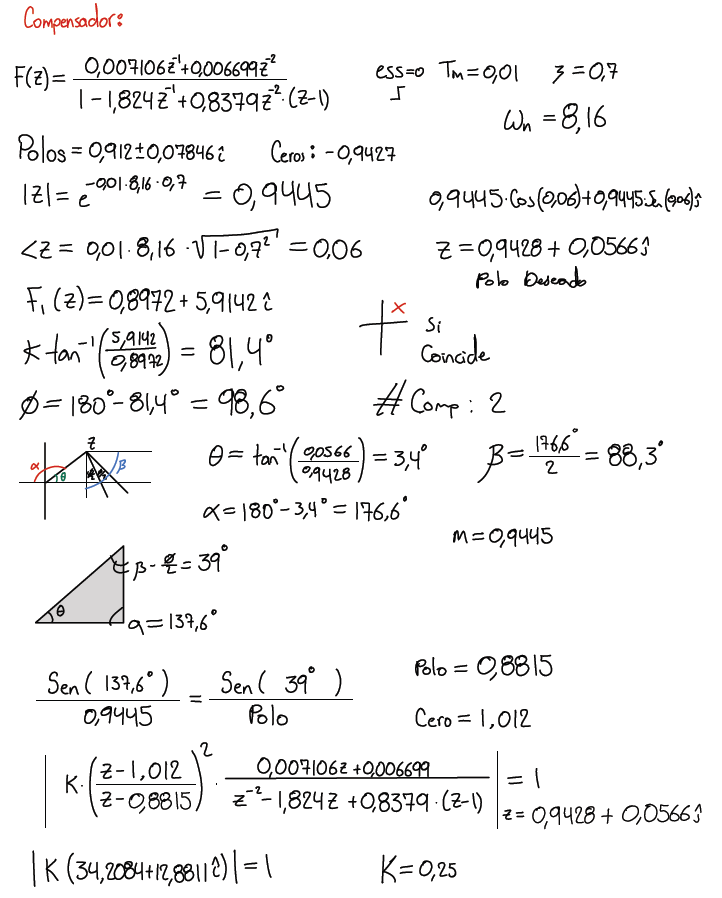 Compensador:
F(z) = (0,007106z^-1 + 0,006699z^-2) / (1 - 1,824z^-1 + 0,8379z^-2 · (z-1))
ess=0 Tm = 0,01 ξ = 0,7
Wn = 8,16
Polos = 0,912 ± 0,07846î Ceros: -0,9427
|z| = e^(-0,01·8,16·0,7) = 0,9445
0,9445·Cos(0,06) + 0,9445·Sen(0,06)ĵ
<z = 0,01·8,16·√(1-0,7²) = 0,06
z = 0,9428 + 0,0566ĵ
Polo Deseado
F₁(z) = 0,8972 + 5,9142î
x
Si
Coincide
∡ tan^-1(5,9142/0,8972) = 81,4°
ø = 180° - 81,4° = 98,6°
# Comp: 2
z
α θ β
θ = tan^-1(0,0566/0,9428) = 3,4°
β = 176,6°/2 = 88,3°
α = 180° - 3,4° = 176,6°
m = 0,9445
β - ø/2 = 39°
θ
a = 137,6°
Sen(137,6°)/0,9445 = Sen(39°)/Polo
Polo = 0,8815
Cero = 1,012
|K·((z-1,012)/(z-0,8815))²·(0,007106z + 0,006699)/(z^-2 - 1,824z + 0,8379·(z-1))| = 1
z = 0,9428 + 0,0566ĵ
|K(34,2084 + 12,8811î)| = 1
K = 0,25